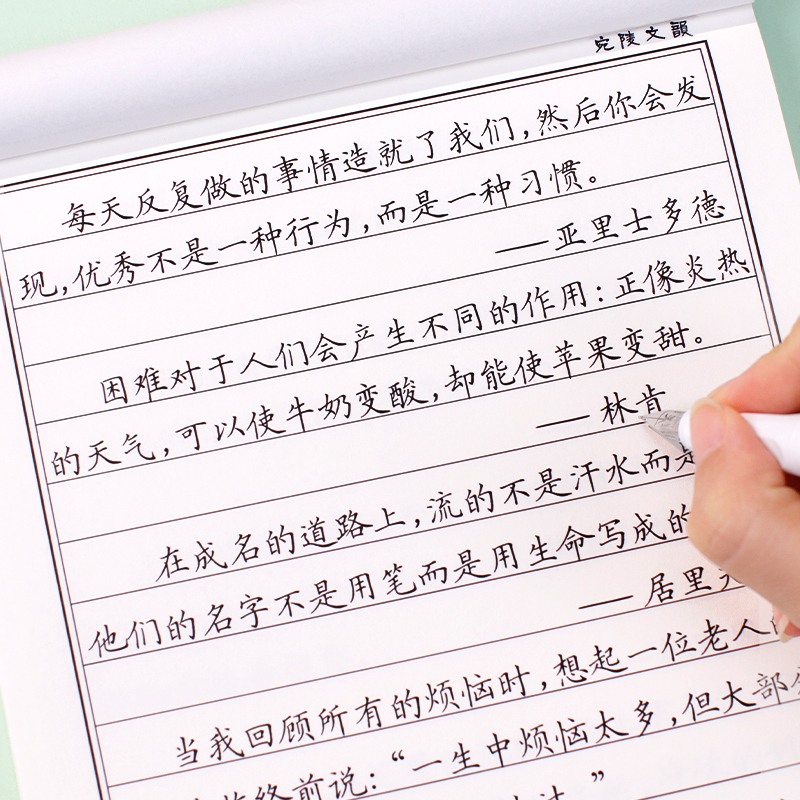 宛陵文韻
每天反复做的事情造就了我们,然后你会发
现,优秀不是一种行为,而是一种习惯。
——亚里士多德
困难对于人们会产生不同的作用:正像炎热
的天气,可以使牛奶变酸,却能使苹果变甜。
——林肯
在成名的道路上,流的不是汗水而是
他们的名字不是用笔而是用生命写成的
——居里夫
当我回顾所有的烦恼时,想起一位老人的
终前说:“一生中烦恼太多,但大部分
”